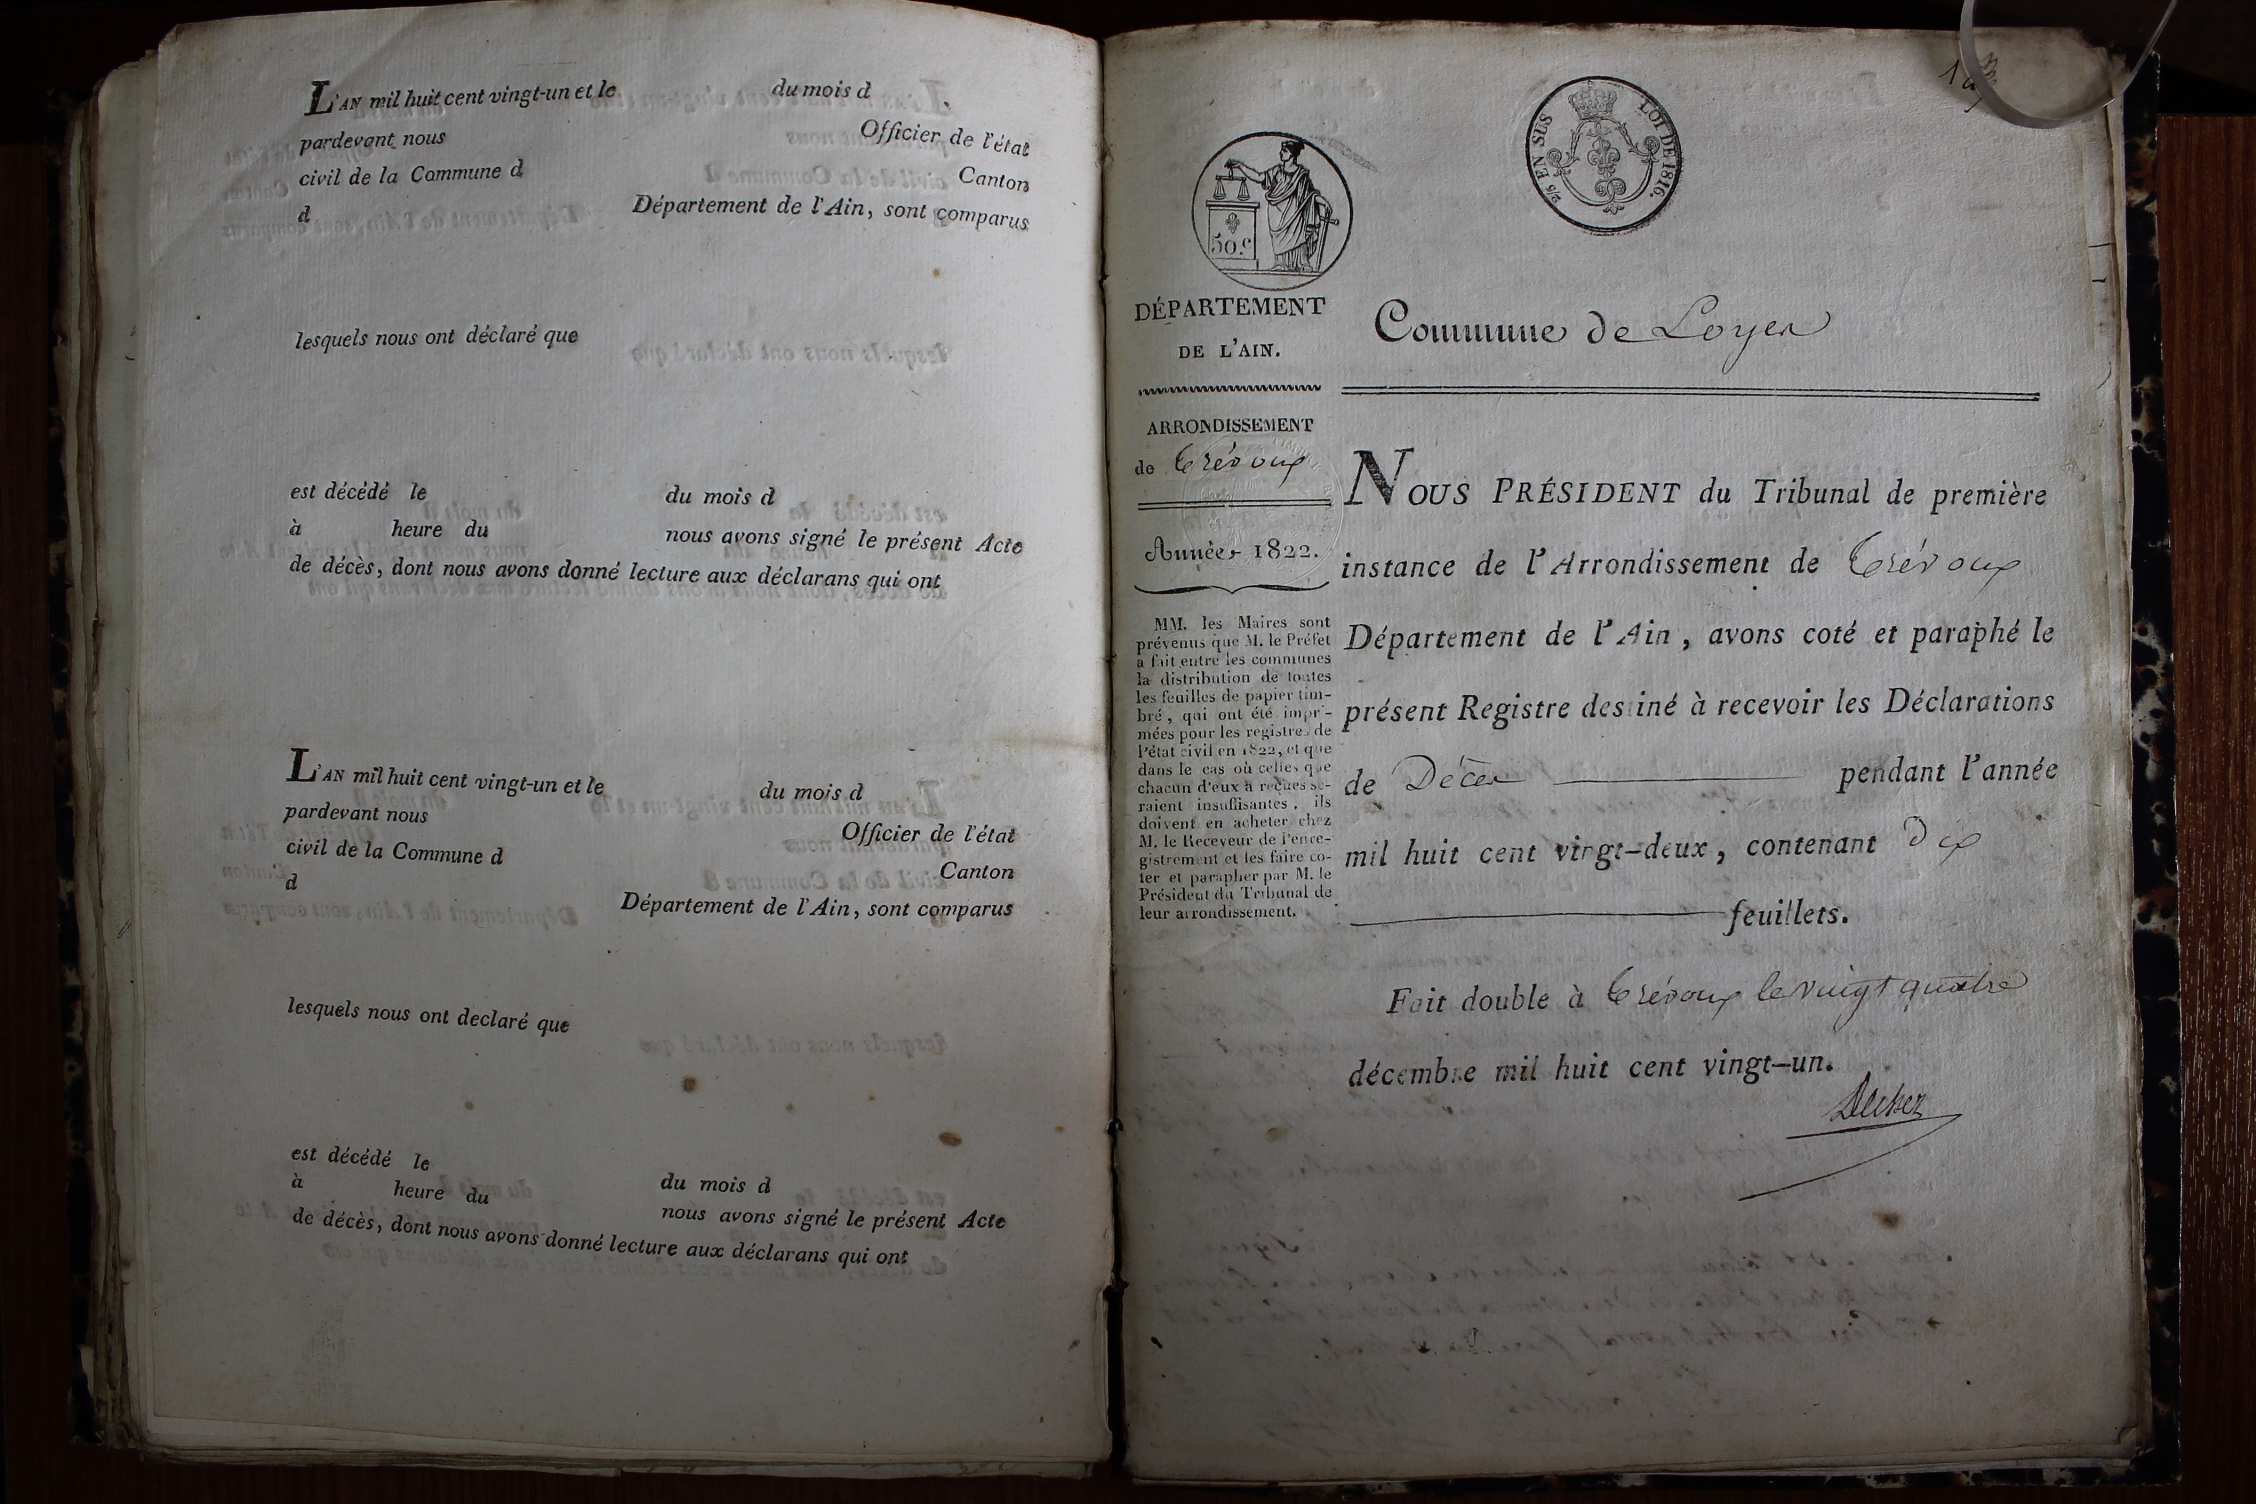 L'AN mil huit cent vingt-un et le du mois d
pardevant nous Officier de l'état
civil de la Commune d Canton
d Département de l'Ain, sont comparus
lesquels nous ont déclaré que
est décédé le du mois d
à heure du nous avons signé le présent Acte
de décès, dont nous avons donné lecture aux déclarans qui ont
L'AN mil huit cent vingt-un et le du mois d
pardevant nous Officier de l'état
civil de la Commune d Canton
d Département de l'Ain, sont comparus
lesquels nous ont declaré que
est décédé le du mois d
à heure du nous avons signé le présent Acte
de décès, dont nous avons donné lecture aux déclarans qui ont
50.c
2/5 EN SUS LOI DE 1816.
DÉPARTEMENT
DE L'AIN.
ARRONDISSEMENT
de Trévoux
Année 1822.
MM. les Maires sont
prévenus que M. le Préfet
a fait entre les communes
la distribution de toutes
les feuilles de papier tim-
bré, qui ont été impri-
mées pour les registres de
l'état civil en 1822, et que
dans le cas où celles que
chacun d'eux a reçues se-
raient insuffisantes, ils
doivent en acheter chez
M. le Receveur de l'enre-
gistrement et les faire co-
ter et parapher par M. le
Président du Tribunal de
leur arrondissement.
Commune de Loyes
NOUS PRÉSIDENT du Tribunal de première
instance de l'Arrondissement de Trévoux
Département de l'Ain, avons coté et paraphé le
présent Registre destiné à recevoir les Déclarations
de Décès pendant l'année
mil huit cent vingt-deux, contenant Dix
feuillets.
Fait double à Trévoux le vingt quatre
décembre mil huit cent vingt-un.